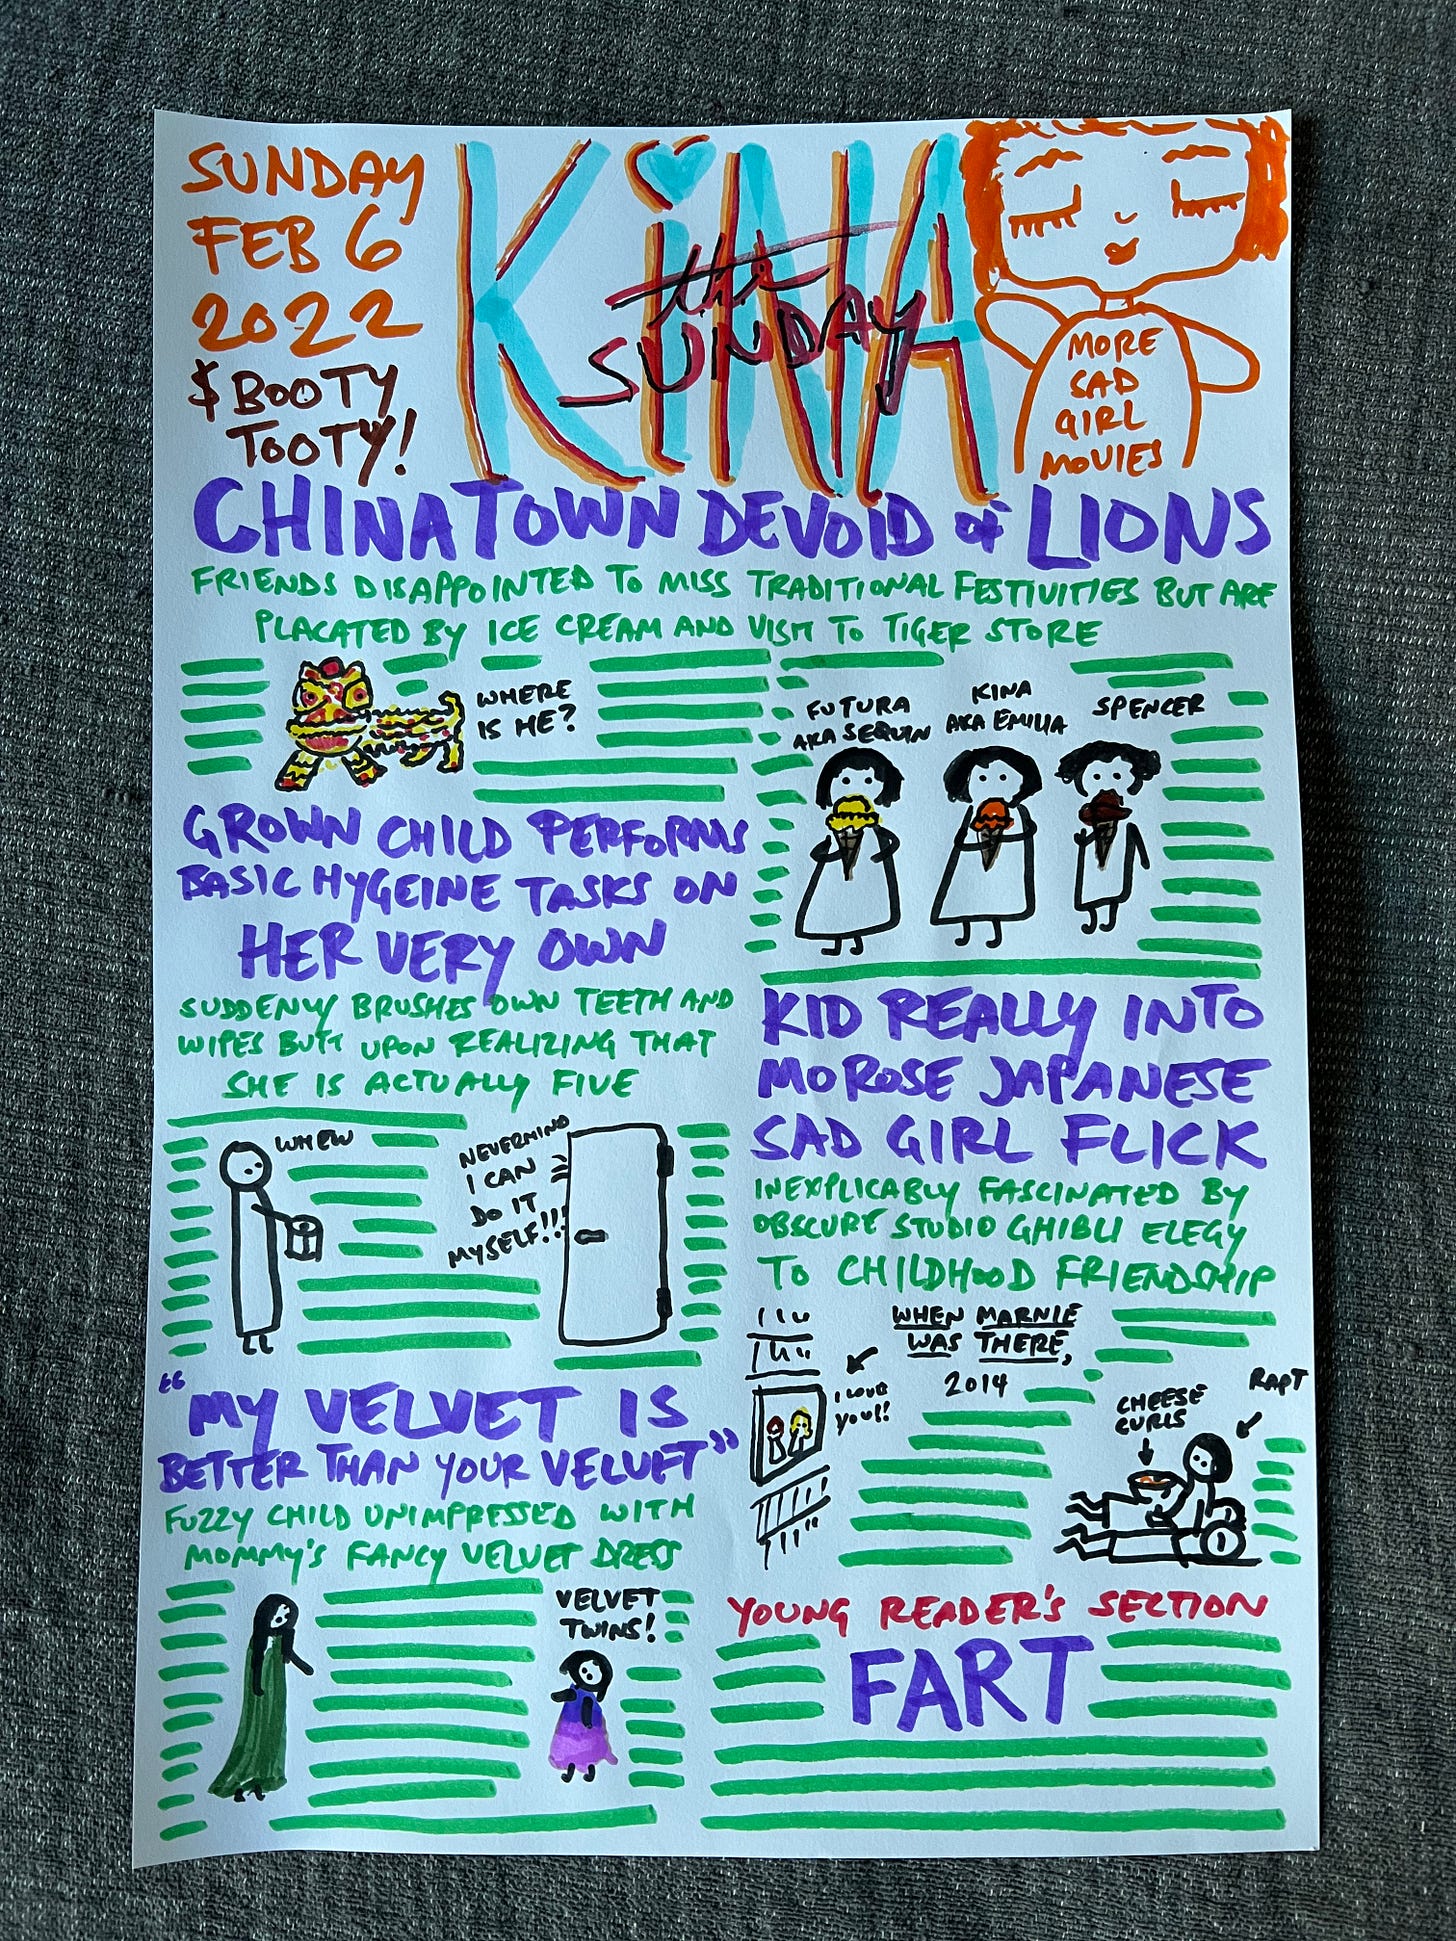 SUNDAY
FEB 6
2022
$ BOOTY
TOOTY!
KiNA
the
SUNDAY
MORE
SAD
GIRL
MOVIES
CHINATOWN DEVOID of LIONS
FRIENDS DISAPPOINTED TO MISS TRADITIONAL FESTIVITIES BUT ARE
PLACATED BY ICE CREAM AND VISIT TO TIGER STORE
WHERE
IS HE?
FUTURA
AKA SEQUIN
KINA
AKA EMILIA
SPENCER
GROWN CHILD PERFORMS
BASIC HYGEINE TASKS ON
HER VERY OWN
SUDDENLY BRUSHES OWN TEETH AND
WIPES BUTT UPON REALIZING THAT
SHE IS ACTUALLY FIVE
WHEW
NEVERMIND
I CAN
DO IT
MYSELF!!!
KID REALLY INTO
MOROSE JAPANESE
SAD GIRL FLICK
INEXPLICABLY FASCINATED BY
OBSCURE STUDIO GHIBLI ELEGY
TO CHILDHOOD FRIENDSHIP
WHEN MARNIE
WAS THERE,
2014
I LOVE
YOU!!
CHEESE
CURLS
RAPT
"MY VELVET IS
BETTER THAN YOUR VELVET"
FUZZY CHILD UNIMPRESSED WITH
MOMMY'S FANCY VELVET DRESS
VELVET
TWINS!
YOUNG READER'S SECTION
FART